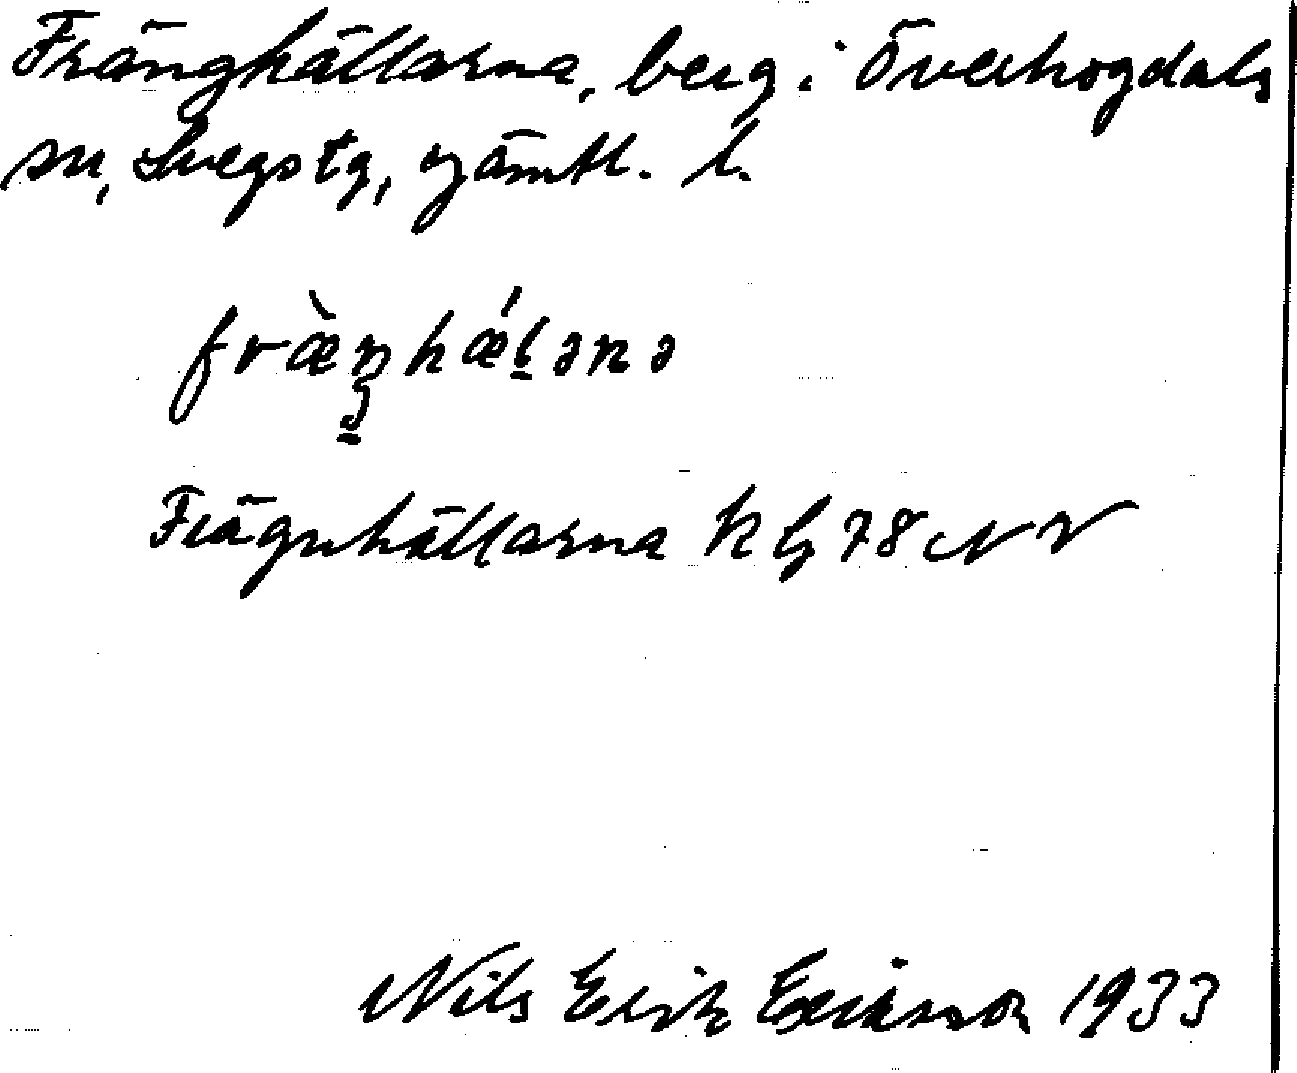 Främghällarna, berg i Överhogdals
sn, Svegs tg, Jämtl. l.
fræ̀ŋhǽlənə
Frägnhällarna k bl 78 NV
Nils Erik Eriksson 1933